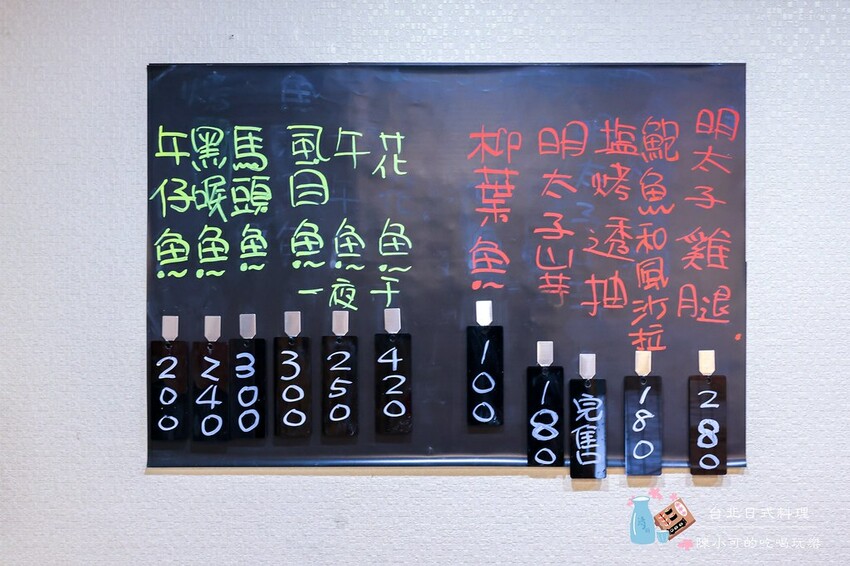 明太子雞腿
280
鮑魚和風沙拉
180
塩烤透抽
完售
明太子山芋
180
柳葉魚
100
花魚
420
午魚
250
虱目魚
300
一夜干
馬頭魚
300
黑喉魚
240
午仔魚
200
台北日式料理
陳小可的吃喝玩樂